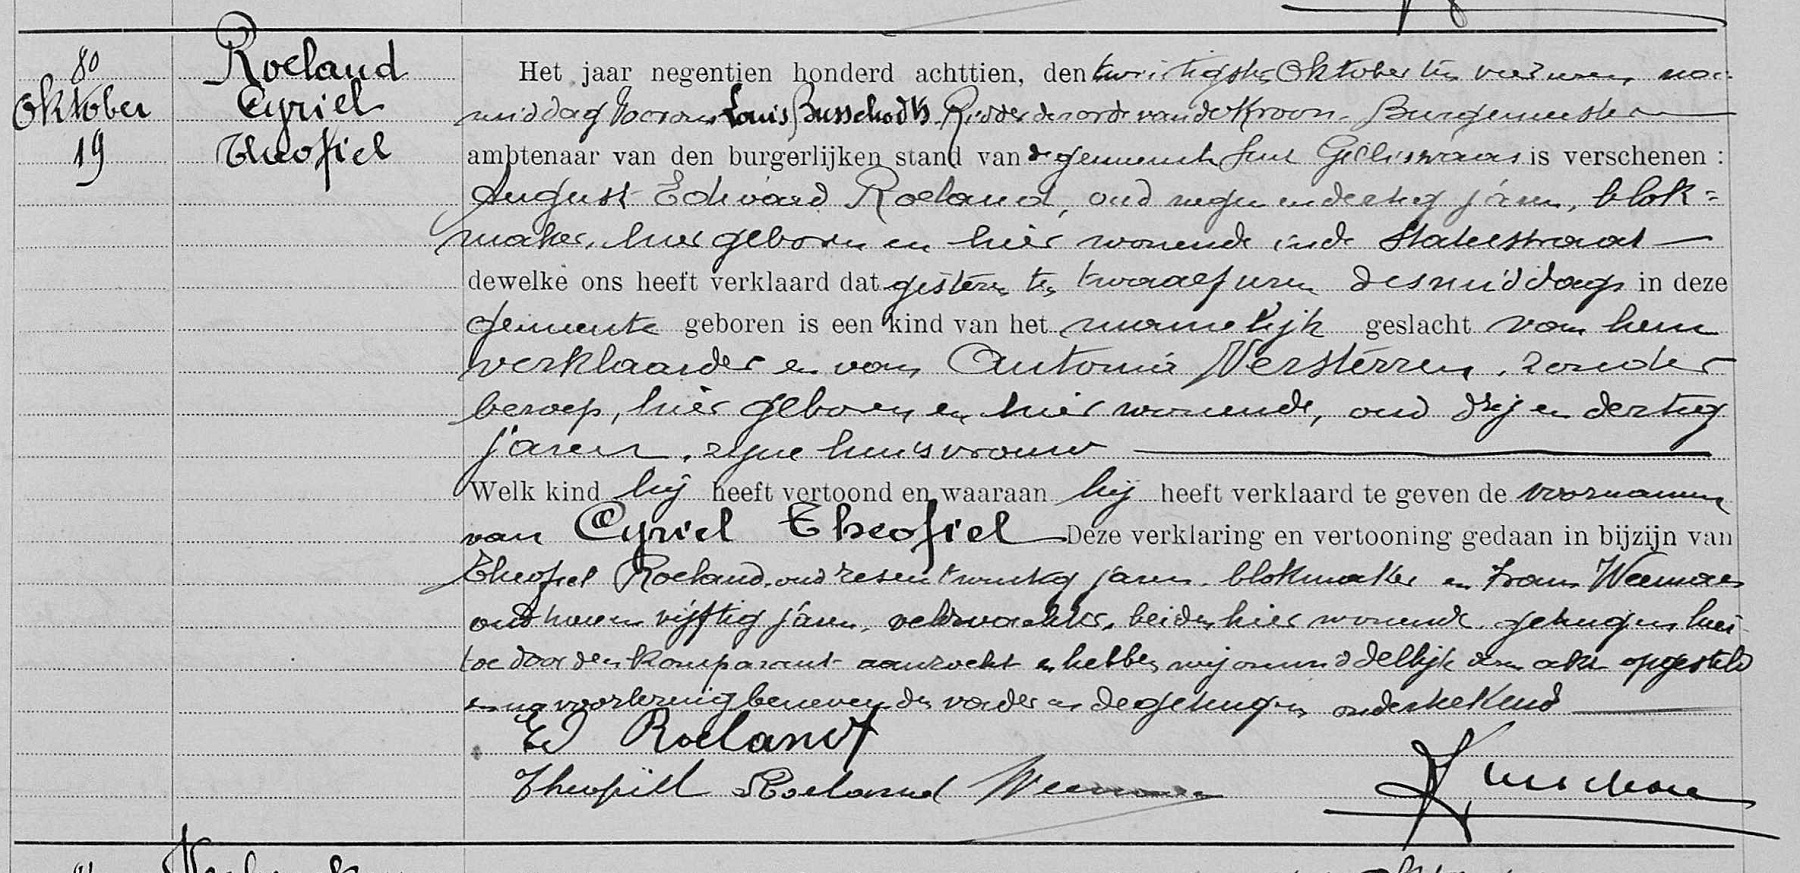 80
Oktober
19
Roeland
Cyriel
Theofiel
Het jaar negentien honderd achttien, den twintigsten Oktober ten vier uren, na-
middag voor ons Louis Busschodts Ridder der orde van de Kroon. Burgemeester
ambtenaar van den burgerlijken stand van de gemeente Sint Gilliswaas is verschenen :
August Edward Roeland, oud negen en dertig jaren, blok=
maker, hier geboren en hier wonende in de Statiestraat
dewelke ons heeft verklaard dat gisteren ten twaalf uren des middags in deze
gemeente geboren is een kind van het mannelijk geslacht van hem
verklaarder en van Antonia Versterren, zonder
beroep, hier geboren en hier wonende, oud drij en dertig
jaren, zijne huisvrouw
Welk kind hij heeft vertoond en waaraan hij heeft verklaard te geven de voornamen
van Cyriel Theofiel Deze verklaring en vertooning gedaan in bijzijn van
Theofiel Roeland, oud zes en twintig jaren, blokmaker en Frans Weemaes
oud twee en vijftig jaren, veldwachter, beiden hier wonende, getuigen hier
toe door den komparant aanzocht en hebben wij onmiddellijk deze akte opgesteld
en na voorlezing benevens den vader en de getuigen onderteekend
Ed Roelandt
Theofiel Roeland Weemaes